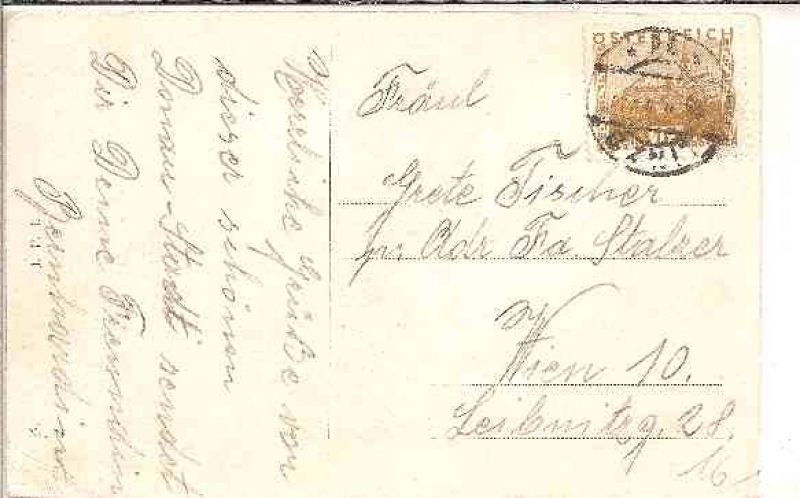 Herzliche Grüße von
dieser schönen
Donau-Stadt sendet
Dir Deine Freundin
ÖSTERREICH
Fräul
Grete Fischer
pr Adr Fa. Stalzer
Wien 10.
Leibnitzg. 28.
16